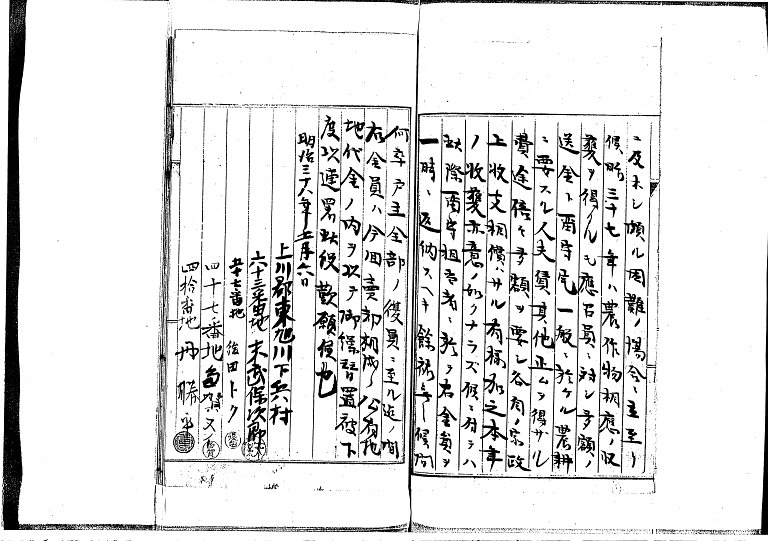 ニ及ホシ頗ル困難ノ場合ニ立至リ
候昨三十七年ハ農作物相應ノ収
獲ヲ得タルモ應召員ニ対シ多額ノ
送金ト留守宅一般ニ於ケル農耕
ニ要スル人夫賃其他止ムヲ得サル
費途倍々多額ヲ要シ各自ノ家政
上收支相償ハサル有様加之本年
ノ收獲亦意ノ如クナラズ候ニ付テハ
此際留守担当者ニ於テ右金員ヲ
一時ニ返納スヘキ餘裕無之候間
何卒戸主全部ノ復員ニ至ル迄ノ間
右金員ハ今回売却相成候公有地
地代金ノ内ヲ以テ御繰替置被下
度以連署此段歎願候也
明治三十八年十二月六日
上川郡東旭川下兵村
六十三番地 末武保次郎
五十七番地 後田トク
四十七番地
四拾番地 丹勝